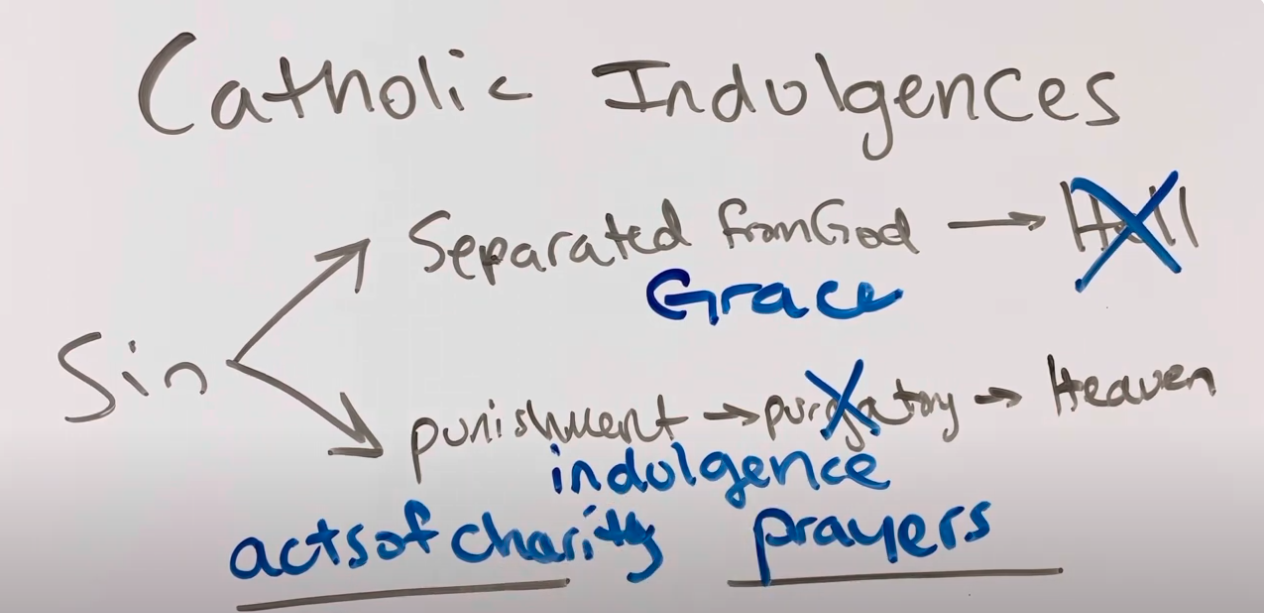 Catholic Indulgences
Separated from God → Hell
Grace
Sin
punishment → purgatory → Heaven
indulgence
acts of charity prayers